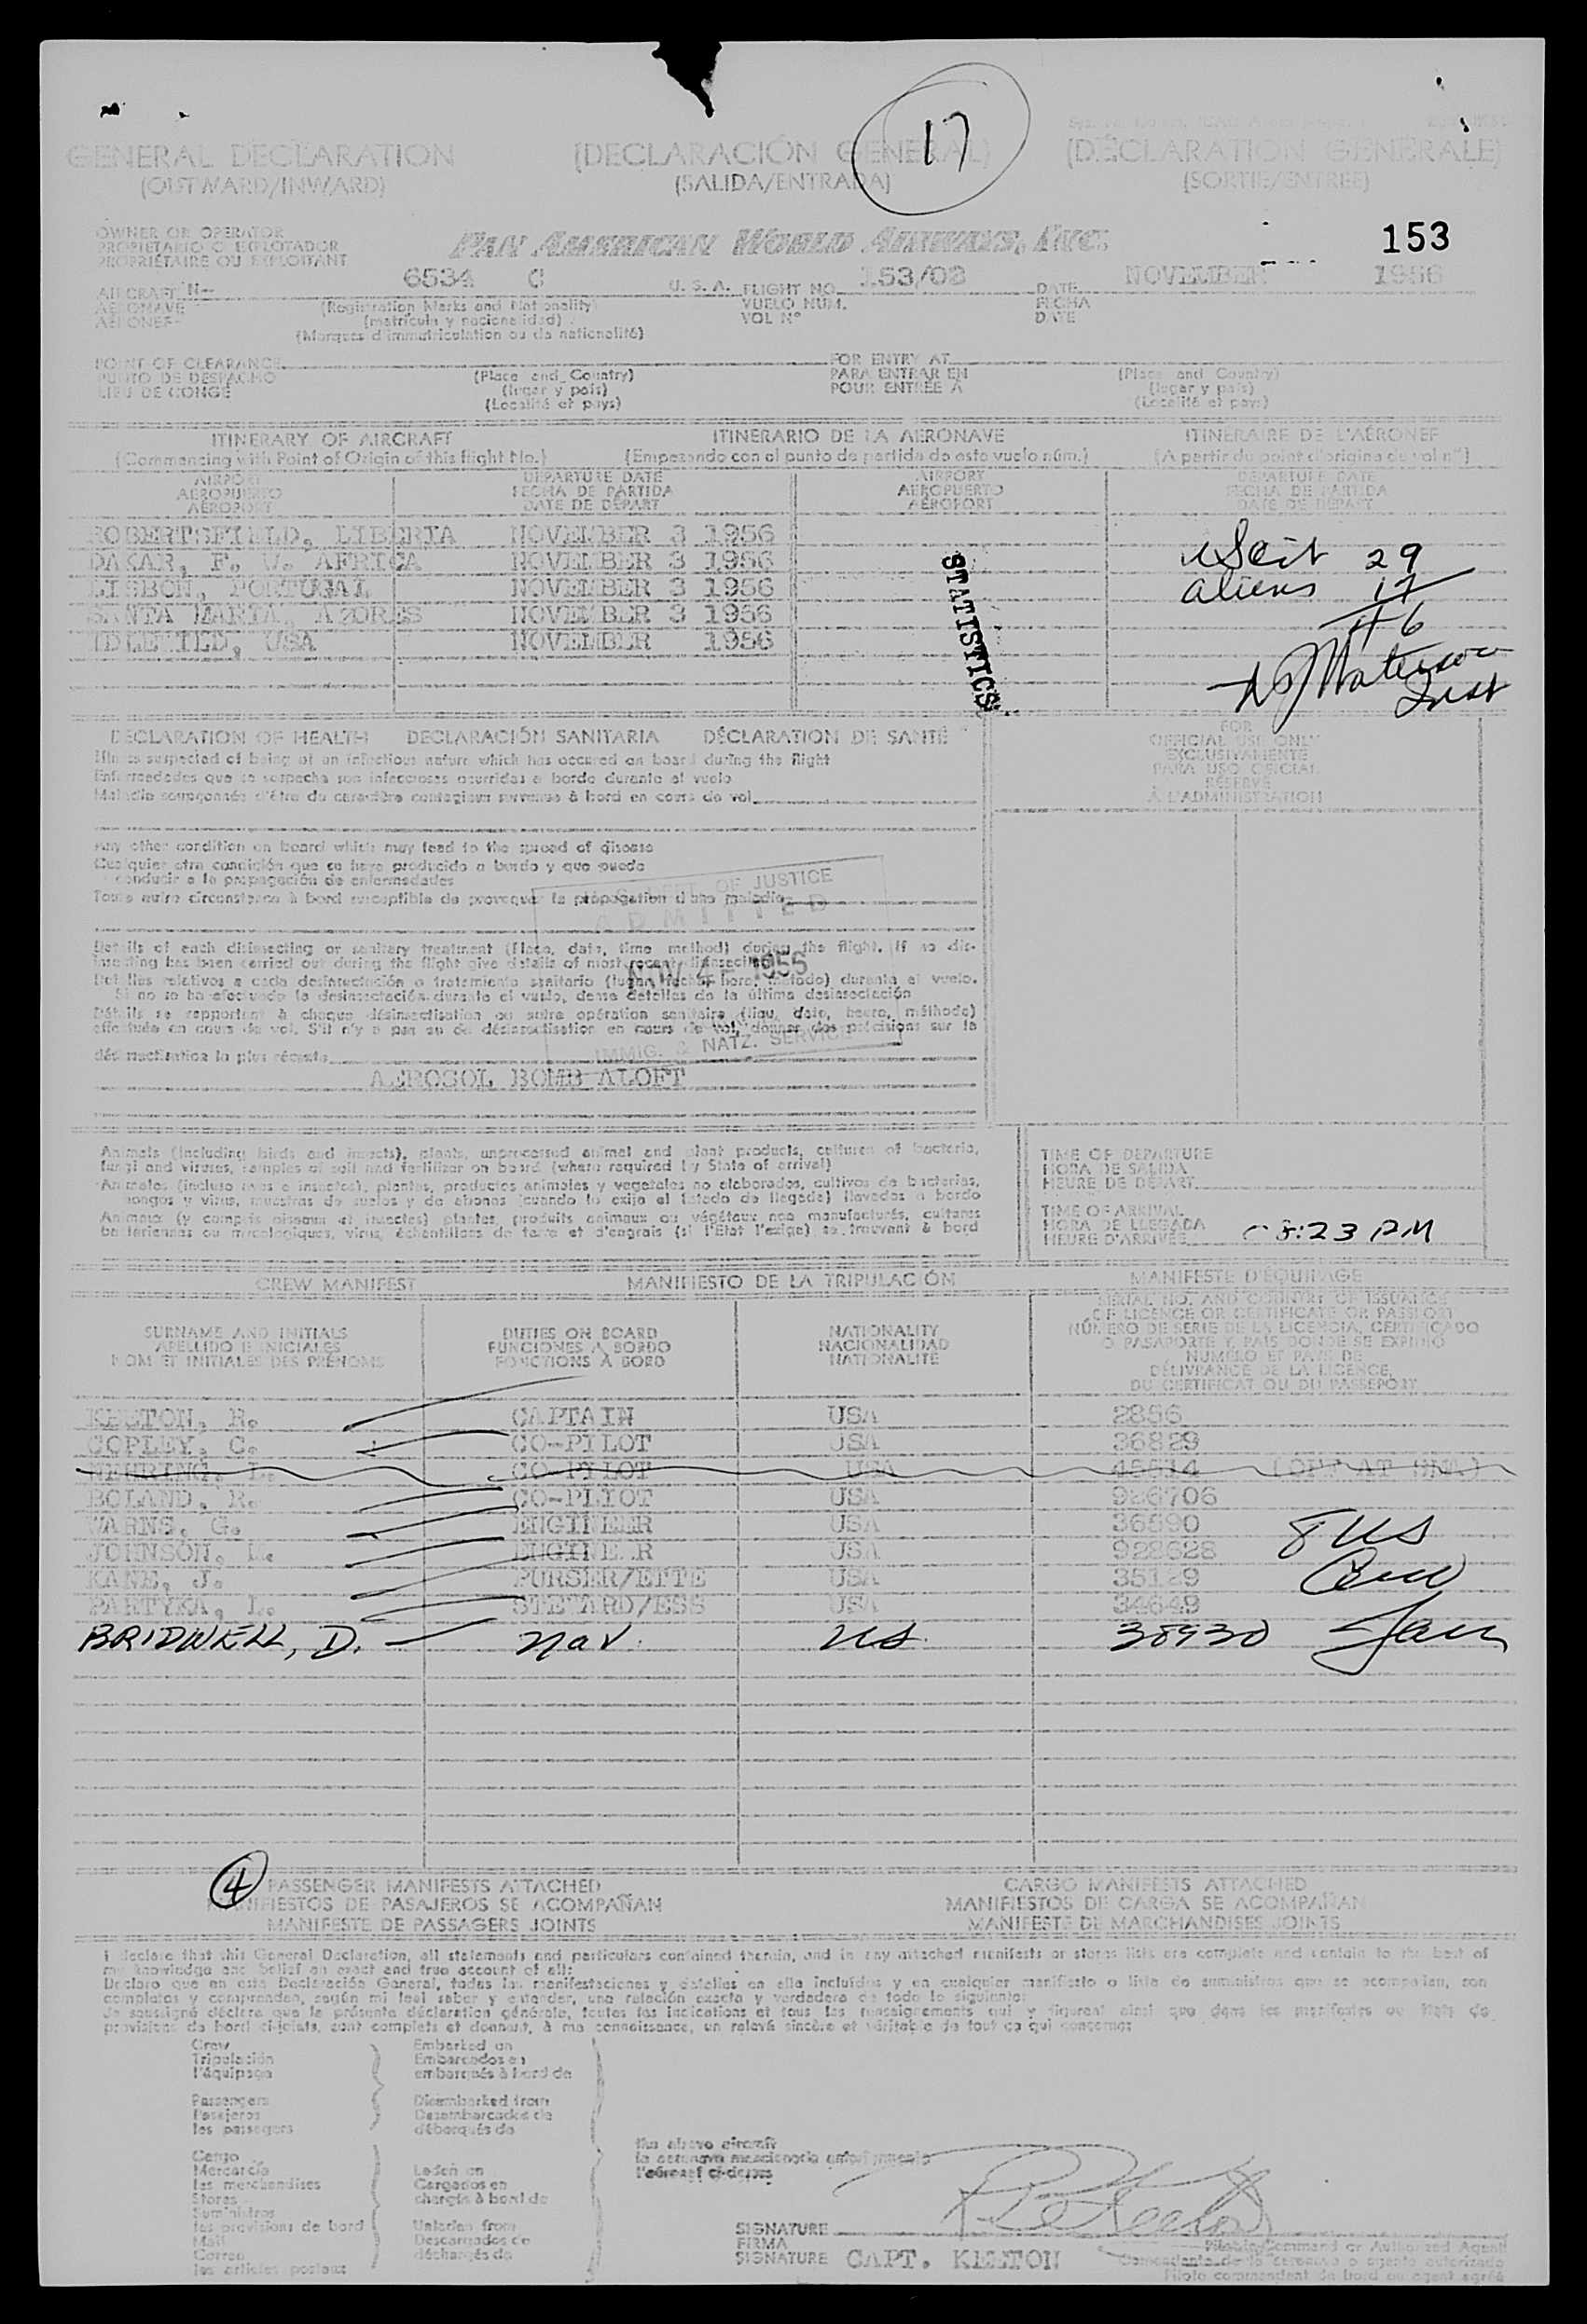 17
GENERAL DECLARATION (DECLARACIÓN GENERAL) (DÉCLARATION GÉNÉRALE)
(OUTWARD/INWARD) (SALIDA/ENTRADA) (SORTIE/ENTRÉE)
OWNER OR OPERATOR
PROPIETARIO O EXPLOTADOR
PROPRIÉTAIRE OU EXPLOITANT
PAN AMERICAN WORLD AIRWAYS, INC.
153
AIRCRAFT N- 6534 C U. S. A. FLIGHT NO. 153/03 DATE NOVEMBER 1956
AERONAVE (Registration Marks and Nationality) VUELO NUM. FECHA
AÉRONEF (matrícula y nacionalidad) VOL Nº DATE
(Marques d'immatriculation ou de nationalité)
POINT OF CLEARANCE FOR ENTRY AT
PUNTO DE DESPACHO (Place and Country) PARA ENTRAR EN (Place and Country)
LIEU DE CONGÉ (lugar y país) POUR ENTRÉE À (lugar y país)
(Localité et pays) (Localité et pays)
ITINERARY OF AIRCRAFT ITINERARIO DE LA AERONAVE ITINÉRAIRE DE L'AÉRONEF
(Commencing with Point of Origin of this flight No.) (Empezando con el punto de partida de este vuelo núm.) (A partir du point d'origine de vol nº)
AIRPORT DEPARTURE DATE AIRPORT DEPARTURE DATE
AEROPUERTO FECHA DE PARTIDA AEROPUERTO FECHA DE PARTIDA
AÉROPORT DATE DE DÉPART AÉROPORT DATE DE DÉPART
ROBERTSFIELD, LIBERIA NOVEMBER 3 1956
DAKAR, F. W. AFRICA NOVEMBER 3 1956
LISBON, PORTUGAL NOVEMBER 3 1956
SANTA MARIA, AZORES NOVEMBER 3 1956
IDLEWILD, USA NOVEMBER 1956
STATISTICS
uscit 29
aliens 17
46
DECLARATION OF HEALTH DECLARACIÓN SANITARIA DÉCLARATION DE SANTÉ
Illness suspected of being of an infectious nature which has occured on board during the flight
Enfermedades que se sospecha son infecciosas ocurridas a bordo durante el vuelo
Maladie soupçonnée d'être du caractère contagieux survenue à bord en cours de vol
FOR
OFFICIAL USE ONLY
EXCLUSIVAMENTE
PARA USO OFICIAL
RÉSERVÉ
À L'ADMINISTRATION
Any other condition on board which may lead to the spread of disease
Cualquier otra condición que se haya producido a bordo y que pueda
conducir a la propagación de enfermedades
Toute autre circonstance à bord susceptible de provoquer la propagation d'une maladie
DEPT. OF JUSTICE
ADMITTED
NOV 4 - 1956
IMMIG. & NATZ. SERVICE
Details of each disinsecting or sanitary treatment (Place, date, time method) during the flight. If no dis-
insecting has been carried out during the flight give details of most recent disinsecting
Detalles relativos a cada desinsectación o tratamiento sanitario (lugar, fecha, hora, método) durante el vuelo.
Si no se ha efectuado la desinsectación durante el vuelo, dense detalles de la última desinsectación
Détails se rapportant à chaque désinsectisation ou autre opération sanitaire (lieu, date, heure, méthode)
effectuée en cours de vol. S'il n'y a pas eu de désinsectisation en cours de vol, donner des précisions sur la
désinsectisation la plus récente
AEROSOL BOMB ALOFT
Animals (including birds and insects), plants, unprocessed animal and plant products, cultures of bacteria,
fungi and viruses, samples of soil and fertilizer on board (where required by State of arrival)
Animales (incluso aves e insectos), plantas, productos animales y vegetales no elaborados, cultivos de bacterias,
hongos y virus, muestras de suelos y de abonos (cuando lo exija el Estado de llegada) llevados a bordo
Animaux (y compris oiseaux et insectes) plantes, produits animaux ou végétaux non manufacturés, cultures
bactériennes ou mycologiques, virus, échantillons de terre et d'engrais (si l'État l'exige) se trouvant à bord
TIME OF DEPARTURE
HORA DE SALIDA
HEURE DE DÉPART
TIME OF ARRIVAL
HORA DE LLEGADA
HEURE D'ARRIVÉE 8:23 PM
CREW MANIFEST MANIFIESTO DE LA TRIPULACIÓN MANIFESTE D'ÉQUIPAGE
SURNAME AND INITIALS DUTIES ON BOARD NATIONALITY SERIAL NO. AND COUNTRY OF ISSUANCE
APELLIDO E INICIALES FUNCIONES A BORDO NACIONALIDAD OF LICENCE OR CERTIFICATE OR PASSPORT
NOM ET INITIALES DES PRÉNOMS FONCTIONS À BORD NATIONALITÉ NÚMERO DE SERIE DE LA LICENCIA, CERTIFICADO
O PASAPORTE Y PAÍS DONDE SE EXPIDIÓ
NUMÉRO ET PAYS DE
DÉLIVRANCE DE LA LICENCE,
DU CERTIFICAT OU DU PASSEPORT
KEETON, R. CAPTAIN USA 2856
COPLEY, C. CO-PILOT USA 36829
NEHRING, L. CO-PILOT USA 45614 (OFF AT SMA)
BOLAND, R. CO-PLIOT USA 986706
WARNS, G. ENGINEER USA 36890
JOHNSON, L. ENGINEER USA 928628
KANE, J. PURSER/ETTE USA 35129
PARTYKA, L. STEWARD/ESS USA 34649
BRIDWELL, D. Nav. US. 38930
8 US
4
PASSENGER MANIFESTS ATTACHED CARGO MANIFESTS ATTACHED
MANIFIESTOS DE PASAJEROS SE ACOMPAÑAN MANIFIESTOS DE CARGA SE ACOMPAÑAN
MANIFESTE DE PASSAGERS JOINTS MANIFESTE DE MARCHANDISES JOINTS
I declare that this General Declaration, all statements and particulars contained therein, and in any attached manifests or stores lists are complete and contain to the best of
my knowledge and belief an exact and true account of all:
Declaro que en esta Declaración General, todas las manifestaciones y detalles en ella incluídos y en cualquier manifiesto o lista de suministros que se acompañan, son
completos y comprenden, según mi leal saber y entender, una relación exacta y verdadera de todo lo siguiente:
Je soussigné déclare que la présente déclaration générale, toutes les indications et tous les renseignements qui y figurent ainsi que dans les manifestes ou listes de
provisions de bord ci-joints, sont complets et donnent, à ma connaissance, un relevé sincère et véritable de tout ce qui concerne:
Crew Embarked on
Tripulación Embarcados en
l'équipage embarqués à bord de
Passengers Disembarked from
Pasajeros Desembarcados de
les passagers débarqués de
the above aircraft
la aeronave mencionada anteriormente
l'aéronef ci-dessus
Cargo
Mercancía Laden on
les merchandises Cargados en
Stores chargés à bord de
Suministros
les provisions de bord Unladen from
Mail Descargados de
Correo déchargés de
les articles postaux
SIGNATURE
FIRMA
SIGNATURE CAPT. KEETON
Pilot in Command or Authorized Agent
Comandante de la aeronave o agente autorizado
Pilote commandant de bord ou agent agréé